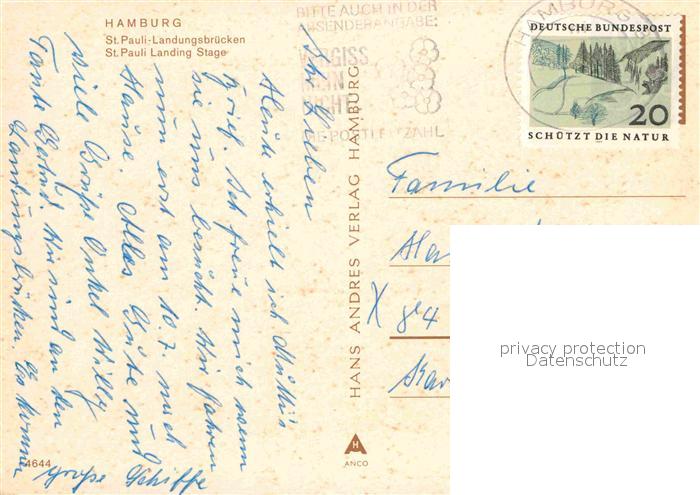 HAMBURG
St.Pauli-Landungsbrücken
St.Pauli Landing Stage
BITTE AUCH IN DER
ABSENDERANGABE:
VERGISS
MEIN
NICHT
DIE POSTLEITZAHL
HAMBURG
DEUTSCHE BUNDESPOST
20
SCHÜTZT DIE NATUR
Ihr Lieben
Heute erhielt ich Mutti's
Brief. Ich freue mich wenn
sie uns besucht. Wir fahren
nun erst am 10.7. nach
Hause. Alles Gute und
viele Grüße Onkel Willy
Tante Wir sind an den
Landungsbrücken. Es kommen
große Schiffe
HANS ANDRES VERLAG HAMBURG
Familie
Ha
X 84
Kar
privacy protection
Datenschutz
4644
H
A
ANCO